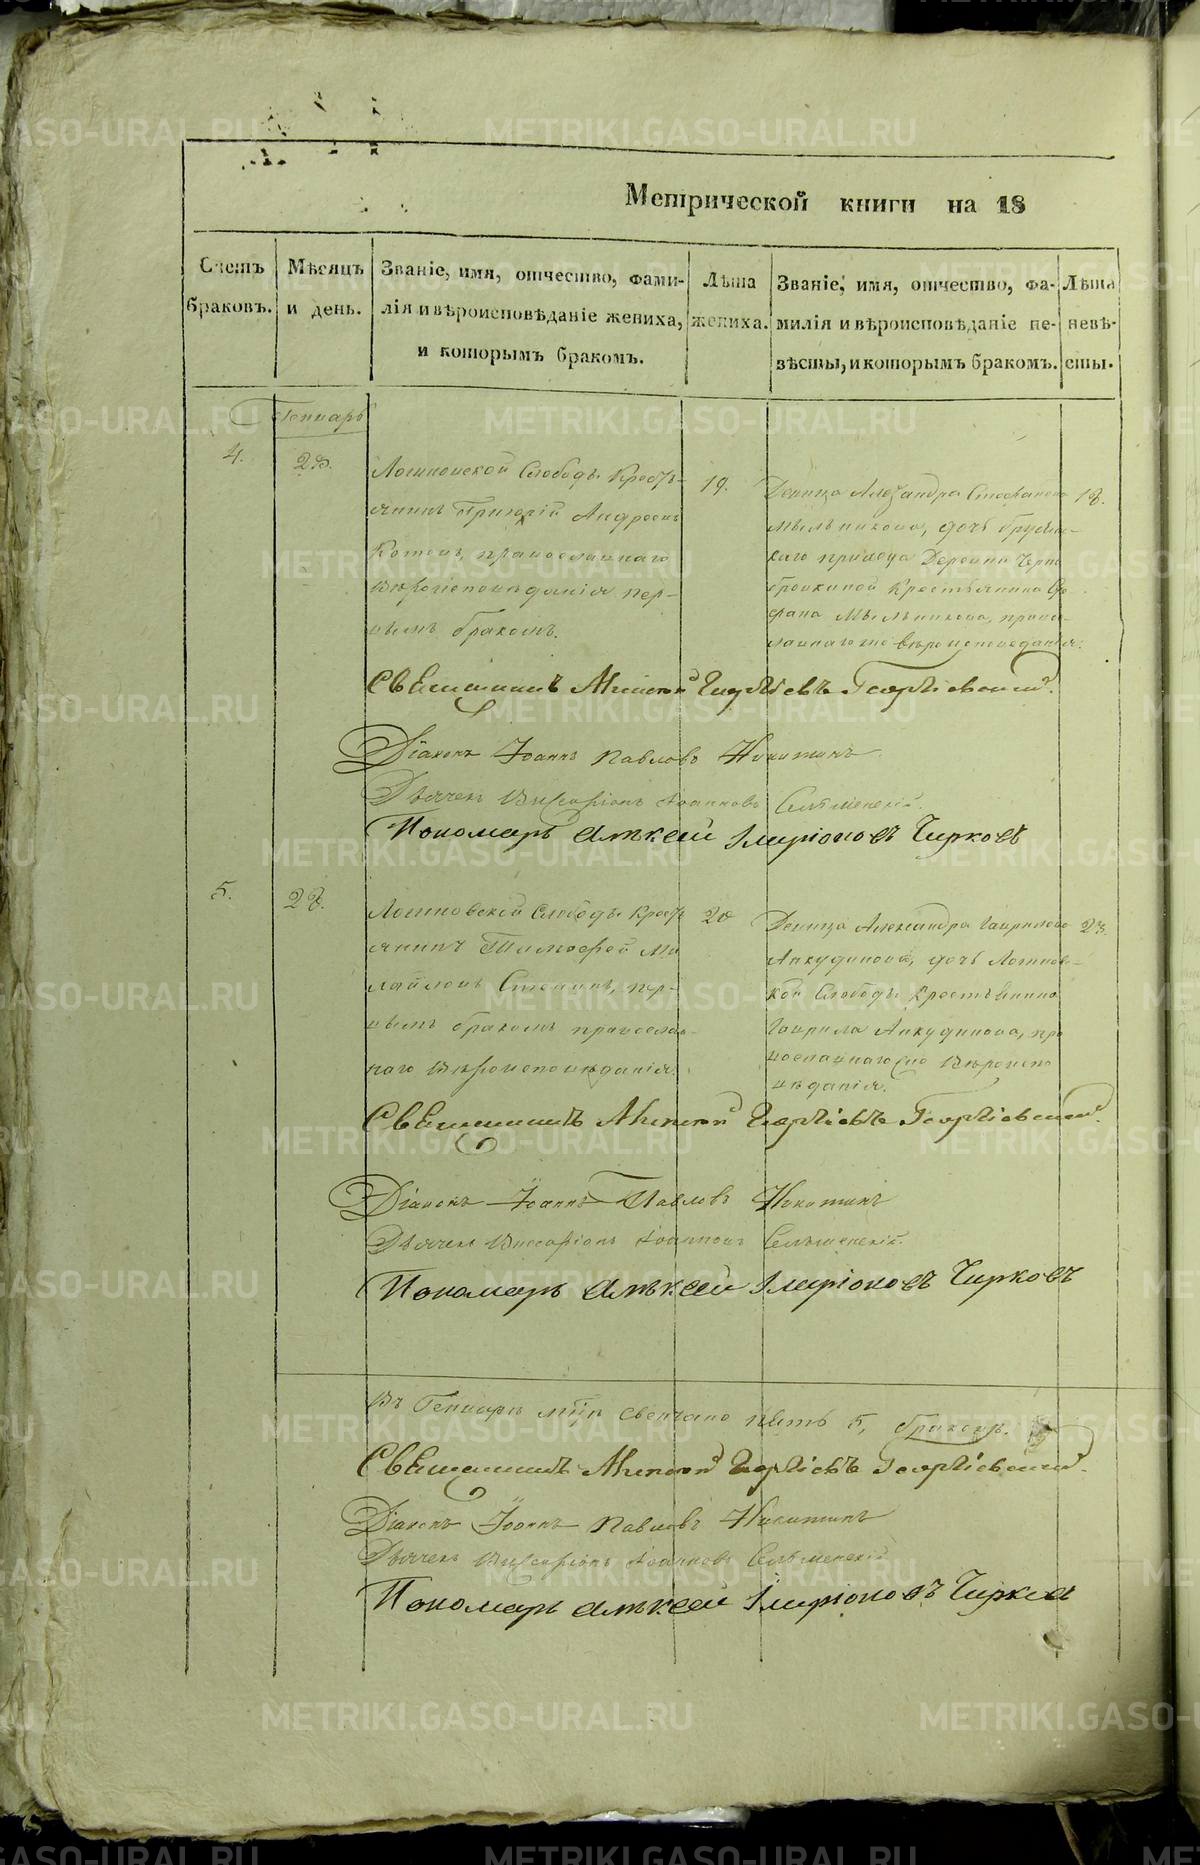 Метрической книги на 18
Счетъ браковъ.
Мѣсяцъ и день.
Званіе, имя, отчество, фами-
лія и вѣроисповѣданіе жениха,
и которымъ бракомъ.
Лѣта
жениха.
Званіе, имя, отчество, фа-
милія и вѣроисповѣданіе не-
вѣсты, и которымъ бракомъ.
Лѣта
невѣ-
сты.
Генварь
4.
28.
Логиновской Слободы Кресть-
янинъ Григорій Андреевъ
православнаго
вѣроисповѣданія пер-
вымъ бракомъ.
19.
Девица Александра Стефанова
Мыльникова, дочь
прихода Деревни
Крестьянина Сте
фана Мыльникова, право-
славнаго же вѣроисповеданія.
18.
Священникъ Алексій Георгіевъ Георгіевскій.
Діаконъ Іоаннъ Павловъ Никитинъ
Дьячекъ Виссаріонъ Іоанновъ
Пономарь Алѣксей Іларіоновъ Чирковъ
5.
28.
Логиновской Слободы Кресть
янинъ Тимофей Ми
хайловъ пер-
вымъ бракомъ православ-
наго Вѣроисповѣданія.
20
Девица Александра Гаврилова
Анкудинова, дочь Логинов-
кой Слободы Крестьянина
Гаврила Анкудинова, пра
вославнаго же Вѣроиспо
вѣданія.
23.
Священникъ Алексій Георгіевъ Георгіевскій.
Діаконъ Іоаннъ Павловъ Никитинъ
Дьячекъ Виссаріонъ Іоанновъ
Пономарь Алѣксей Іларіоновъ Чирковъ
Въ Генварѣ мцѣ свенчано пять 5, браковъ.
Священникъ Алексій Георгіевъ Георгіевскій.
Діаконъ Іоаннъ Павловъ Никитинъ
Дьячекъ Виссаріонъ Іоанновъ
Пономарь Алѣксей Іларіоновъ Чирковъ
METRIKI.GASO-URAL.RU